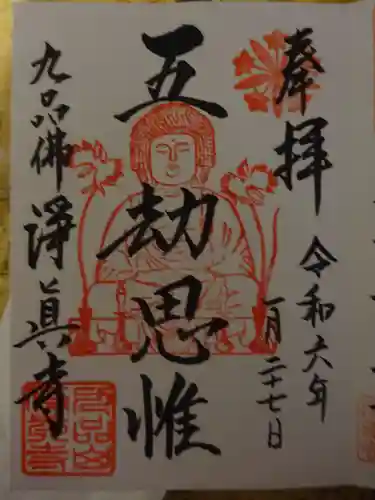 奉拝
令和六年
一月二十七日
五劫思惟
九品佛
淨眞寺